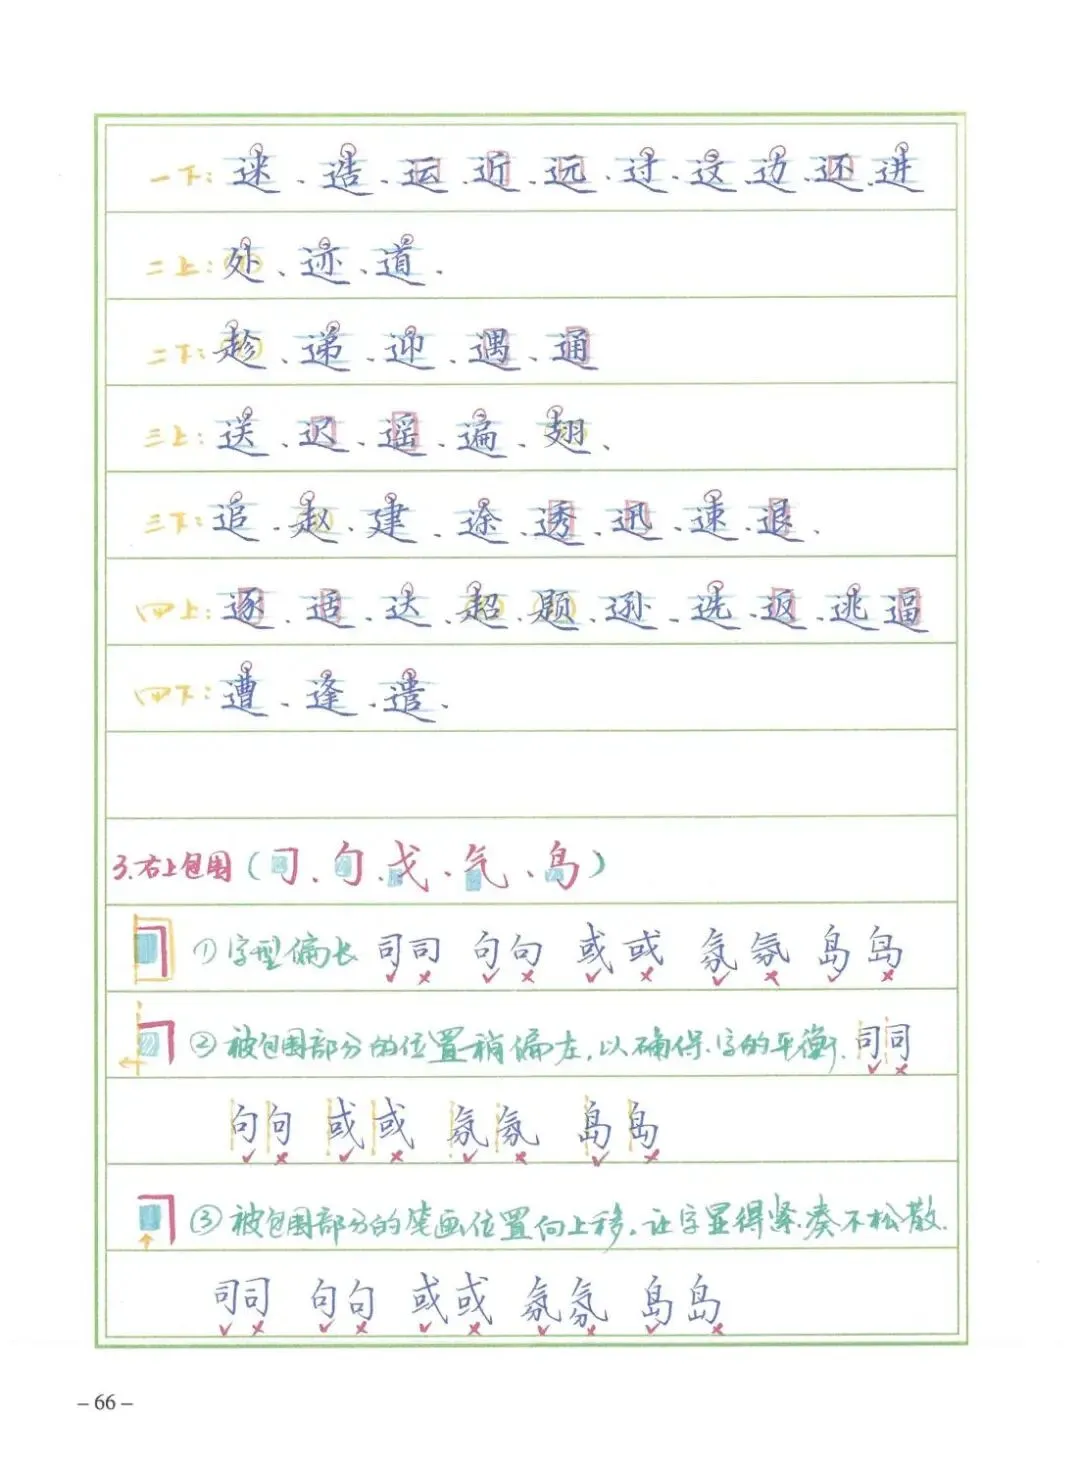 一下：迷、造、运、近、远、过、这、边、还、进
二上：处、迹、道、
二下：趁、递、迎、遇、通
三上：送、迟、遥、遍、翅、
三下：追、赵、建、途、透、迅、速、退、
四上：逐、适、达、超、题、逊、选、返、逃、逼
四下：遭、逢、遣、
3.右上包围（司、句、戈、气、岛）
①字型偏长 司司 句句 或或 氛氛 岛岛
②被包围部分的位置稍偏左，以确保字的平衡．司司
句句 或或 氛氛 岛岛
③被包围部分的笔画位置向上移，让字显得紧凑不松散．
司司 句句 或或 氛氛 岛岛
– 66 –